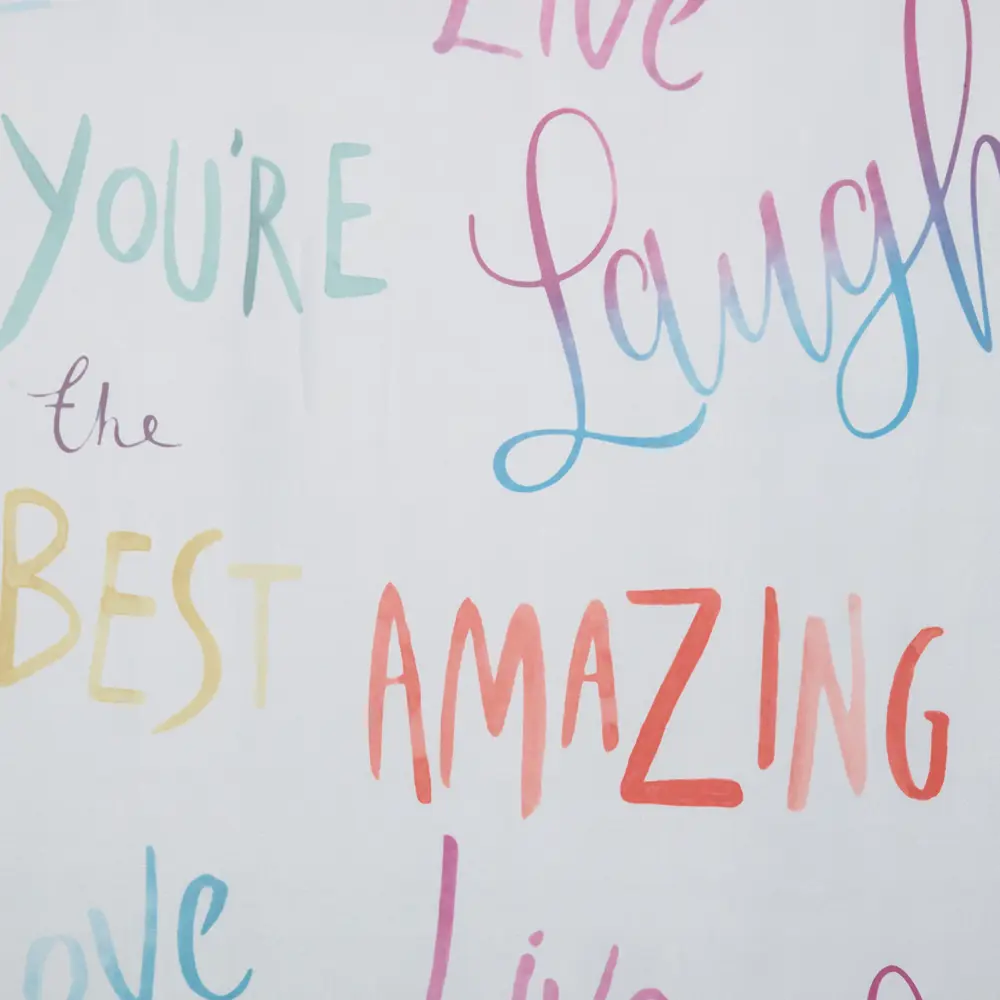 Live
YOU'RE
Laugh
the
BEST
AMAZING
ove
Live